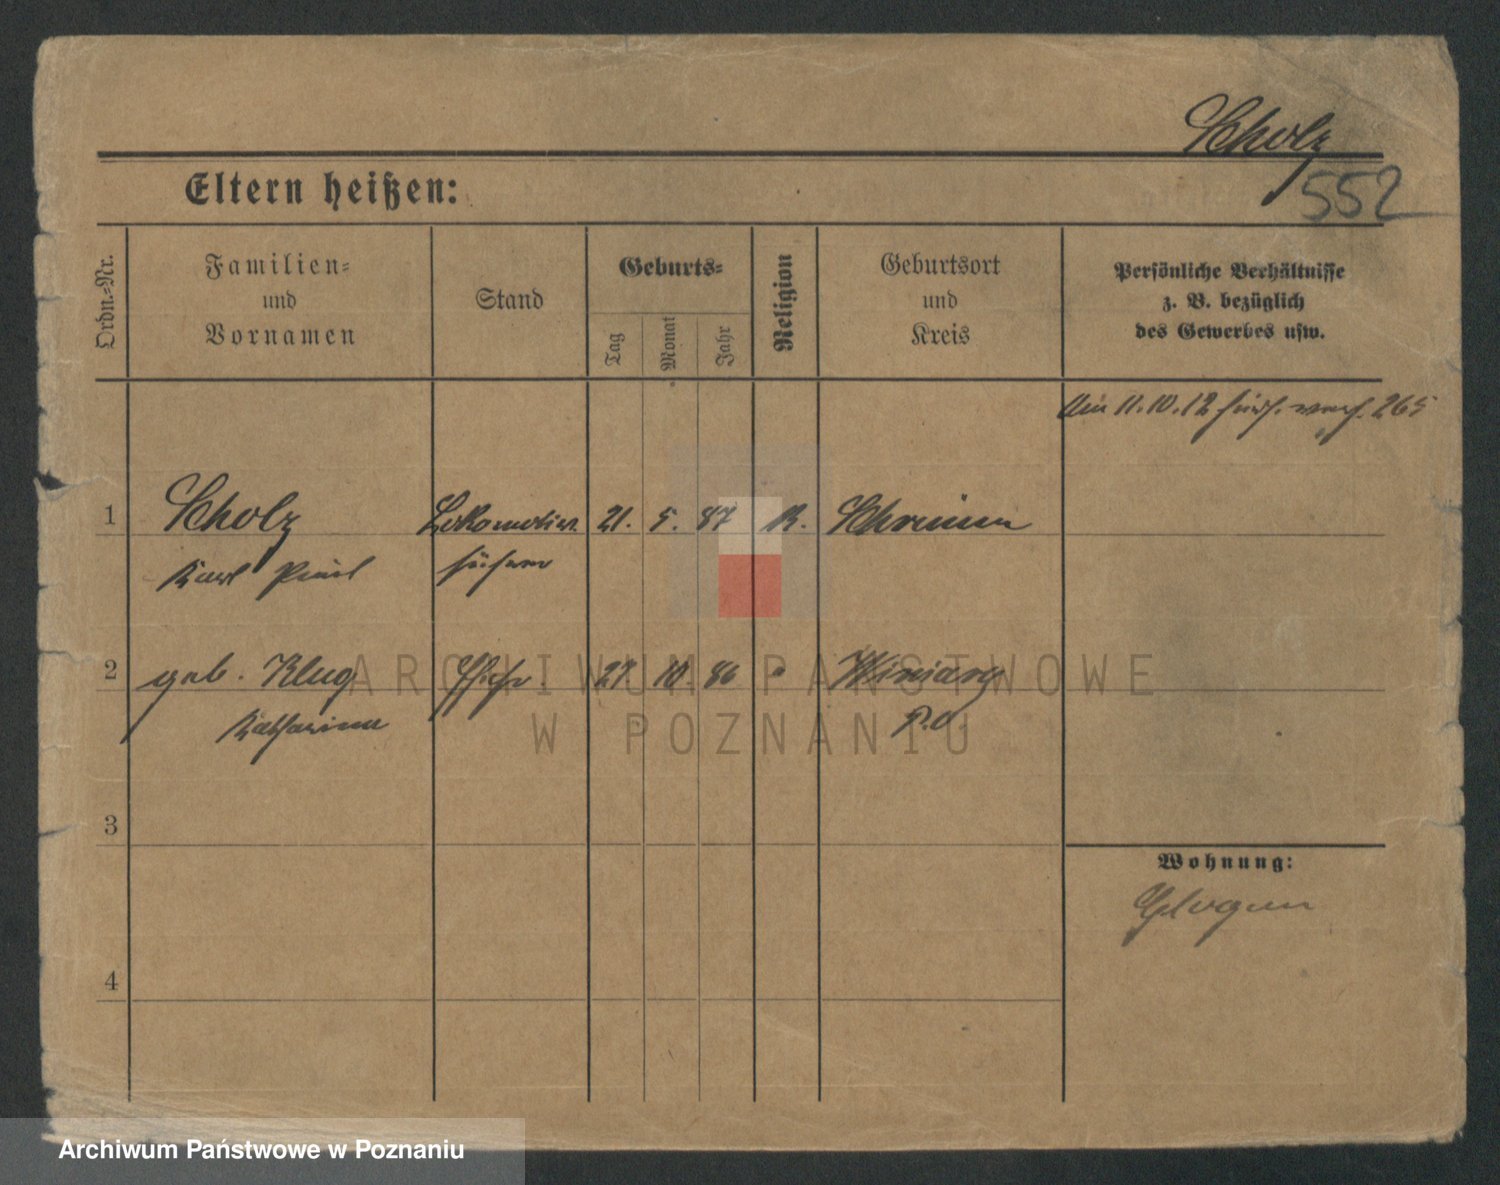 Scholz
552
Eltern heißen:
Ordn.-Nr.
Familien-
und
Vornamen
Stand
Geburts-
Tag
Monat
Jahr
Religion
Geburtsort
und
Kreis
Persönliche Verhältnisse
z. B. bezüglich
des Gewerbes usw.
11.10.12 265
1 Scholz Lokomotiv 21. 5. 87 K. Schrimm
Karl Paul führer
2 geb. Klug 27 10. 86 " Winiary
Katharina P.O.
3
4
Wohnung:
Glogau
ARCHIWUM PAŃSTWOWE
W POZNANIU
Archiwum Państwowe w Poznaniu